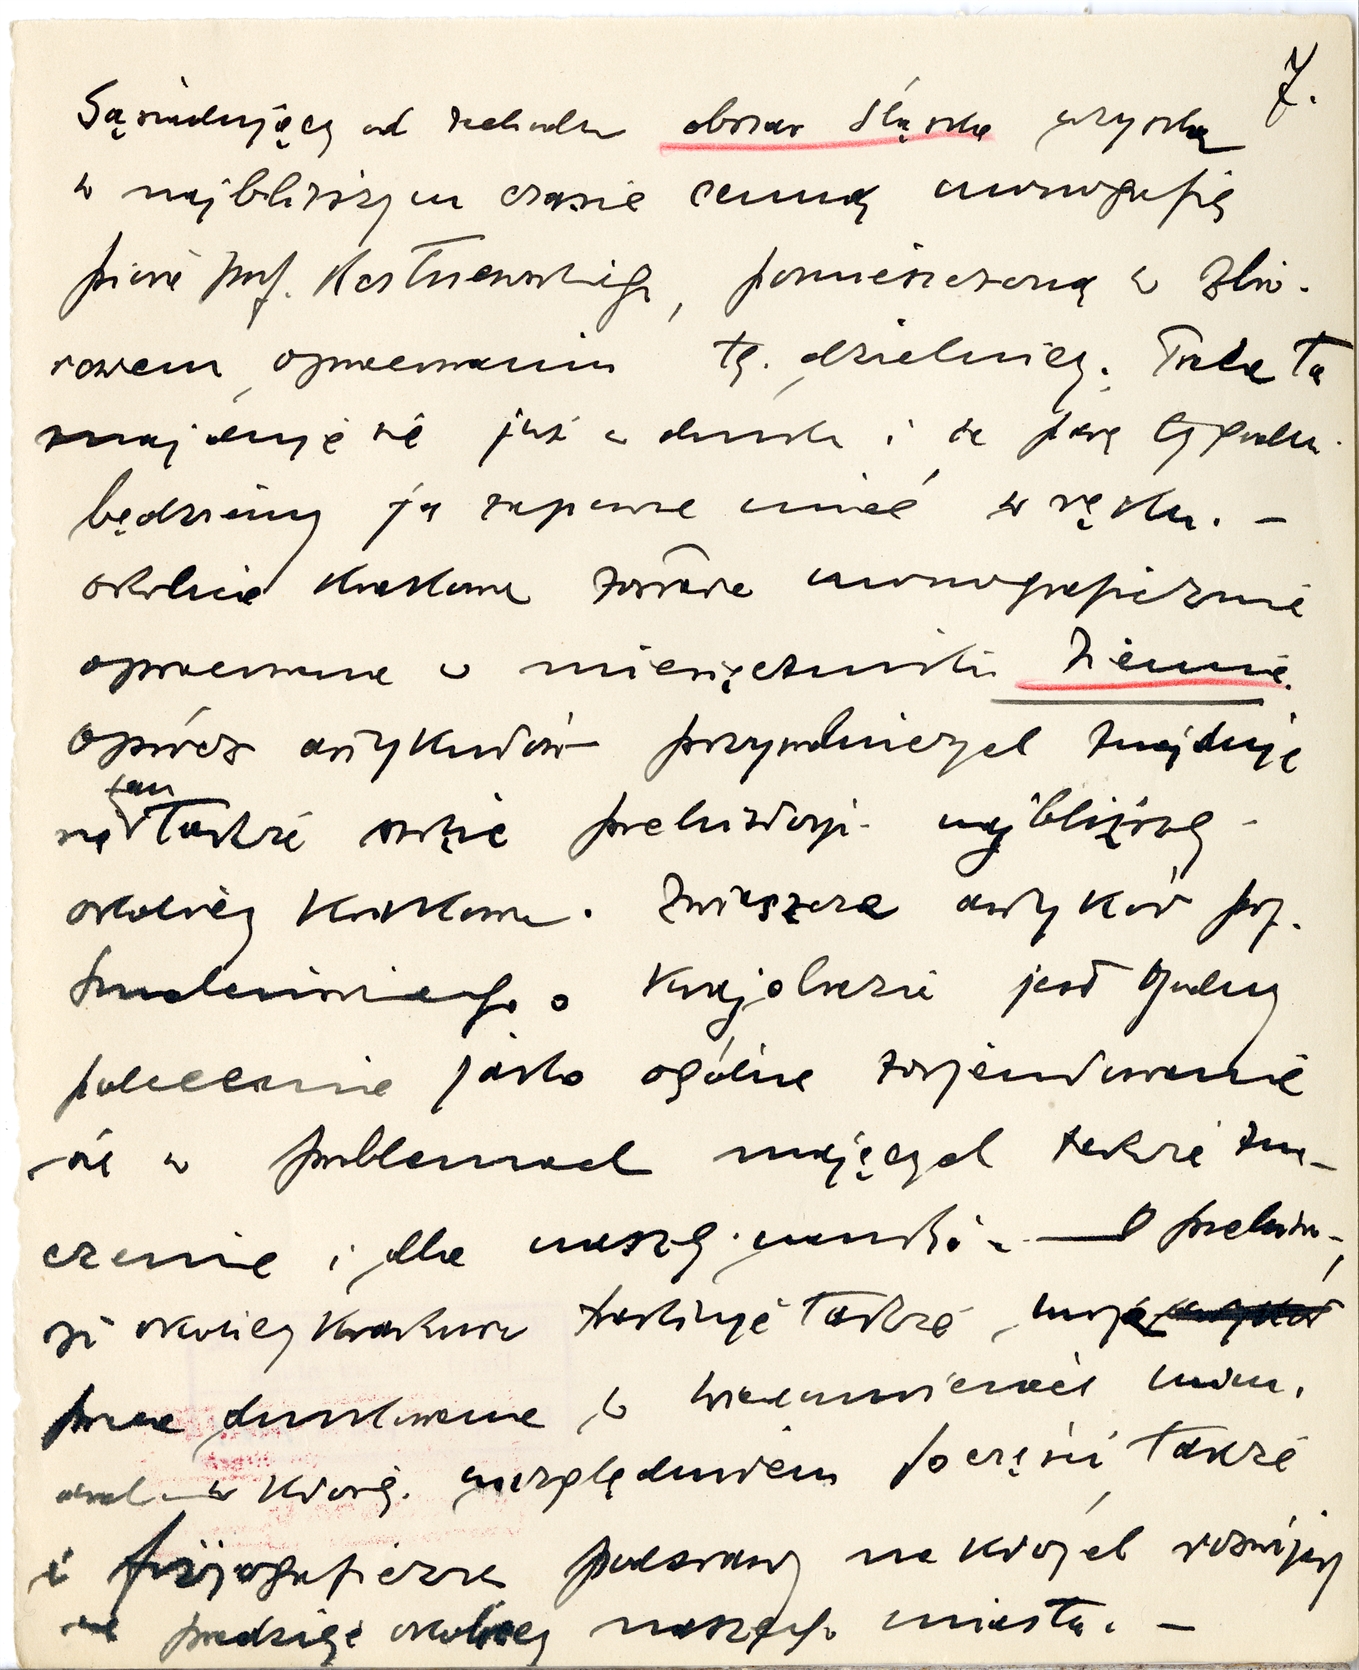 7.
Sąsiadujący od zachodu obszar śląska uzyska
w najbliższym czasie cenną monografię
pióra prof. Kostrzewskiego, pomieszczoną w Zbio-
rowem opracowaniu tej dzielnicy. Praca ta
znajduje się już w druku i za parę tygodni
będziemy ją zapewne mieć w ręku. —
okolice Krakowa zostały monograficznie
opracowane w miesięczniku Ziemia.
oprócz artykułów przyrodniczych znajduje
się tam także szkic prehistorji najbliższej
okolicy Krakowa. Zwłaszcza artykuł prof.
Smoleńskiego o Krajobrazie jest godny
polecenia jako ogólne zorjentowanie
się w problemach mających także zna-
czenie i dla naszej nauki. — O prehisto-
rji okolicy Krakowa traktuje także moja
praca drukowana w
w której uwzględniłem po części także
i fizjograficzne podstawy na których rozwijały
się pradzieje okolicy naszego miasta. —